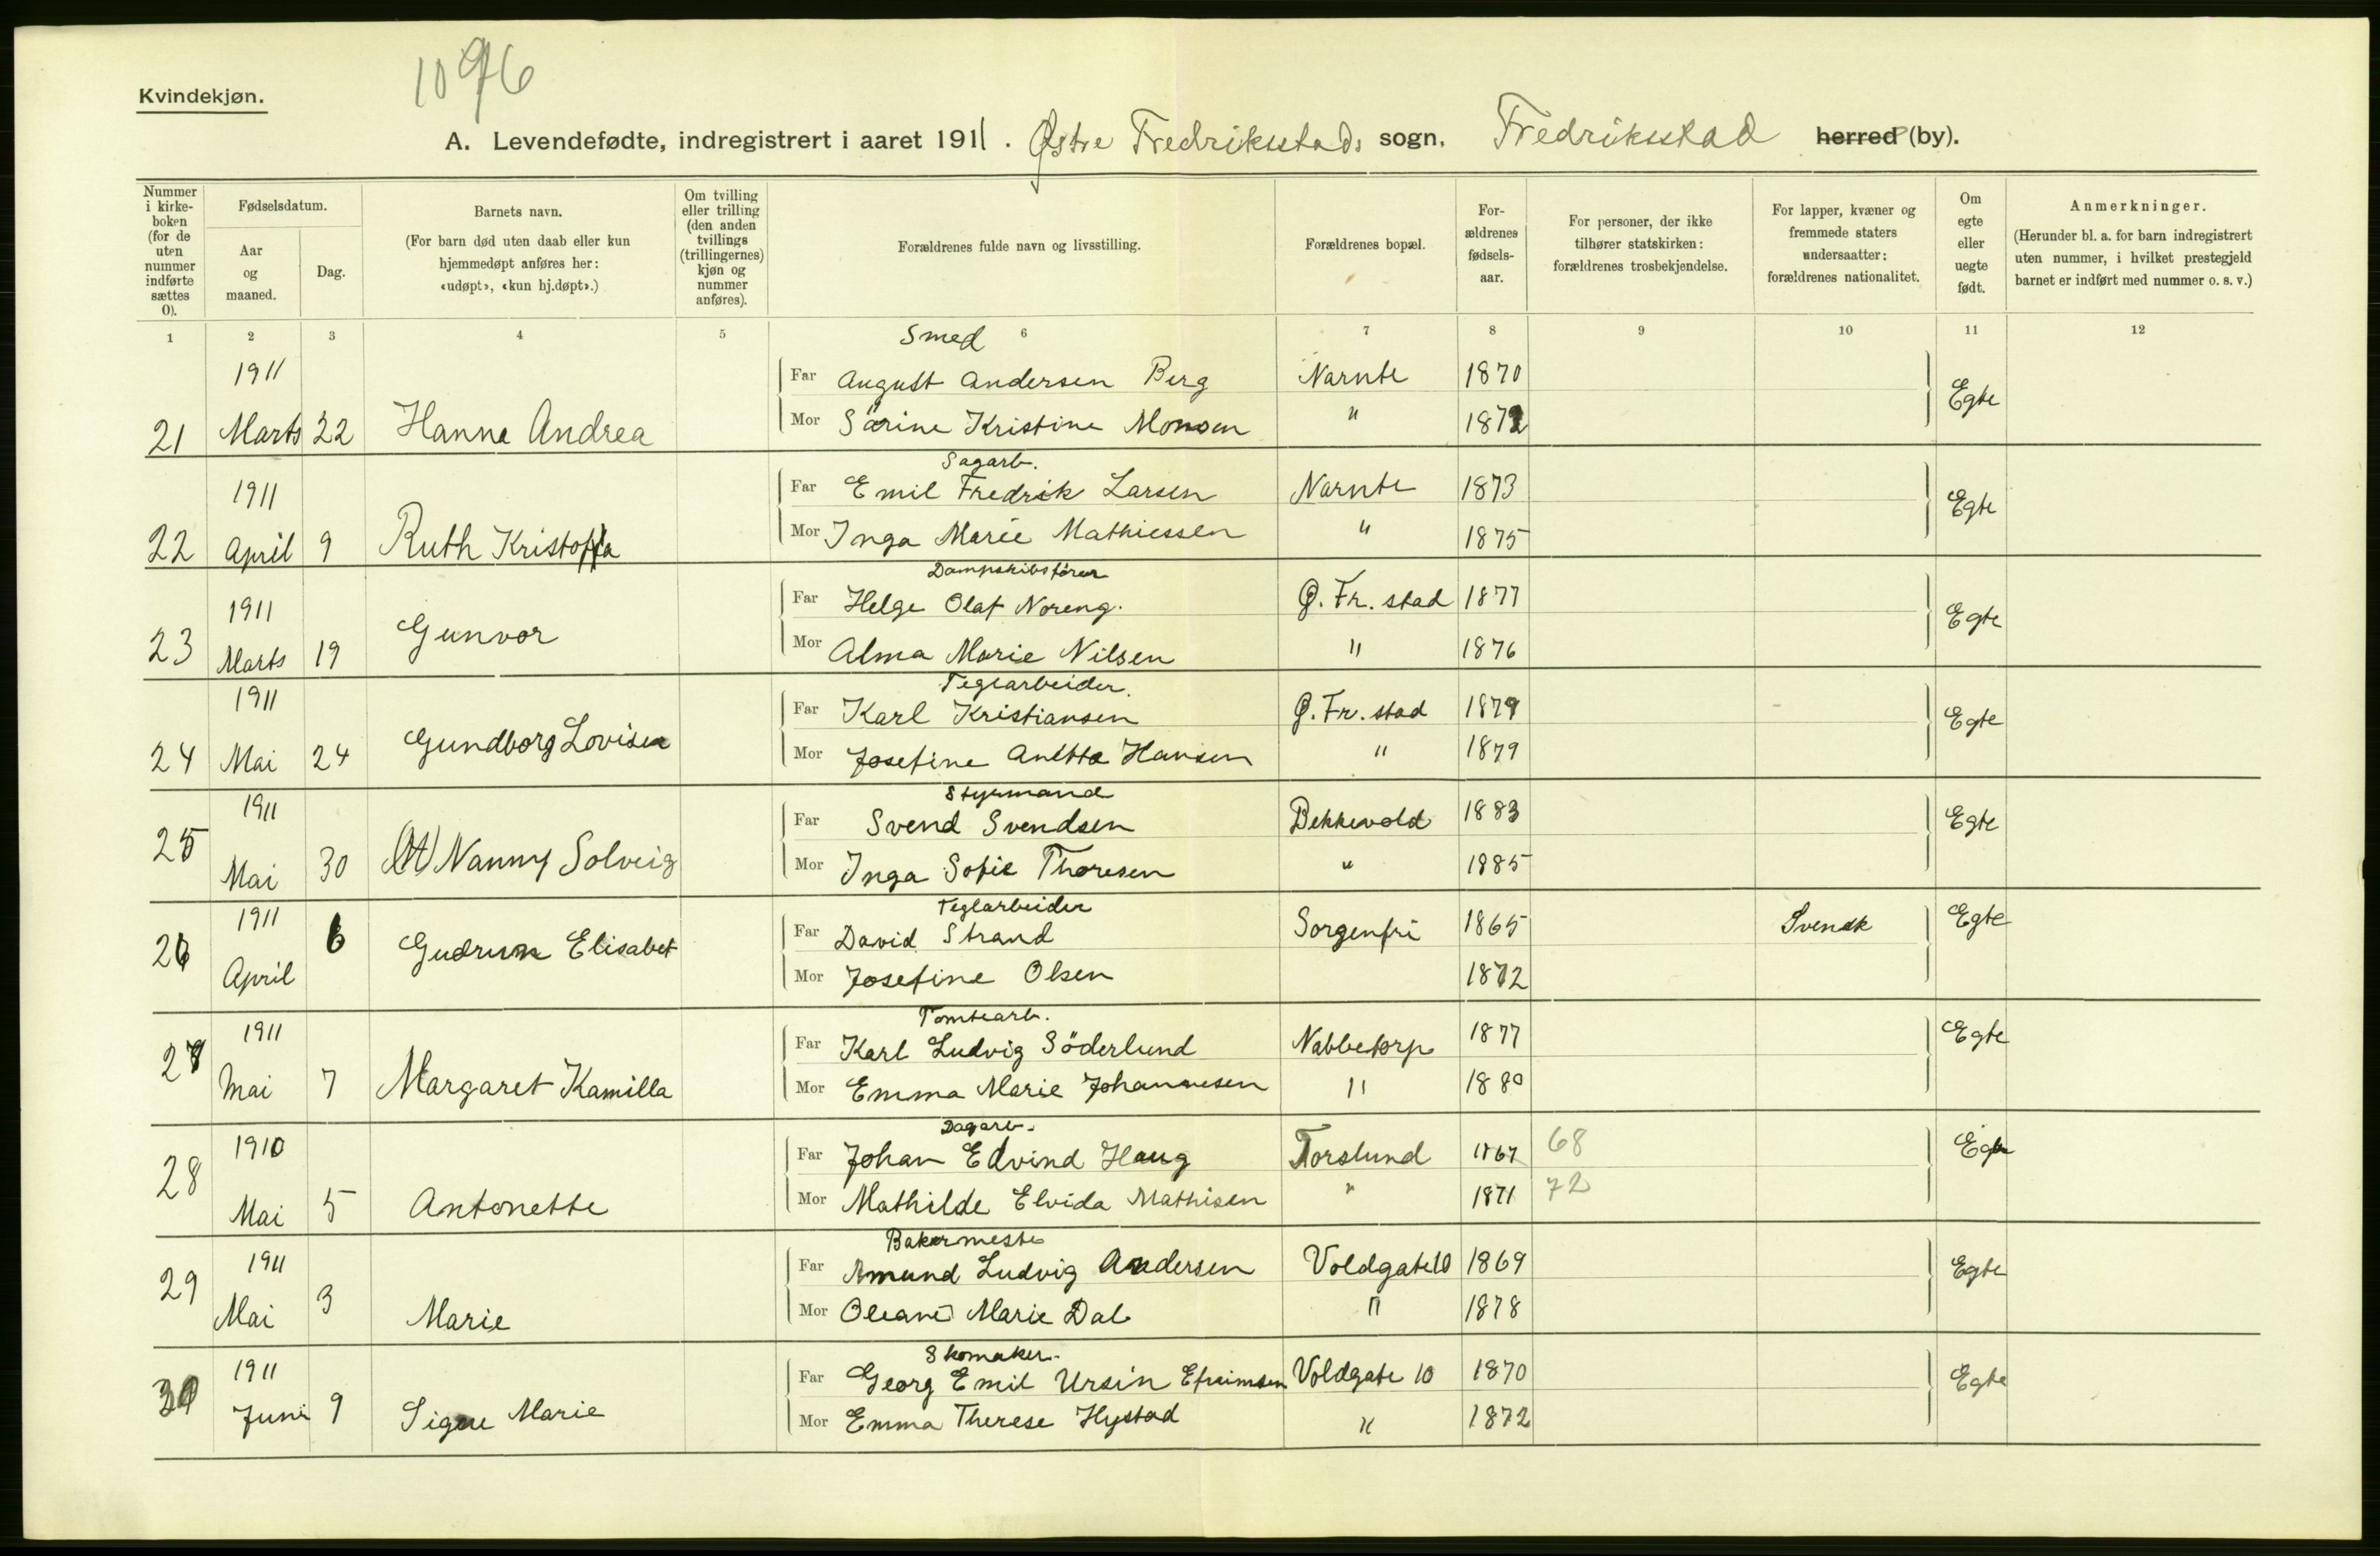 1096
Kvindekjøn.
A. Levendefødte, indregistrert i aaret 1911. Østre Fredriksstads sogn, Fredriksstad herred (by).
Nummer i kirkeboken (for de uten nummer indførte sættes 0).
Fødselsdatum.
Aar og maaned.
Dag.
Barnets navn.
(For barn død uten daab eller kun hjemmedøpt anføres her: «udøpt», «kun hj.døpt».)
Om tvilling eller trilling (den anden tvillings (trillingernes) kjøn og nummer anføres).
Forældrenes fulde navn og livsstilling.
Forældrenes bopæl.
Forældrenes fødselsaar.
For personer, der ikke tilhører statskirken: forældrenes trosbekjendelse.
For lapper, kvæner og fremmede staters undersaatter: forældrenes nationalitet.
Om egte eller uegte født.
Anmerkninger.
(Herunder bl. a. for barn indregistrert uten nummer, i hvilket prestegjeld barnet er indført med nummer o. s. v.)
1 2 3 4 5 6 7 8 9 10 11 12
Smed
1911 Far August Andersen Berg Narnte 1870 Egte
21 Marts 22 Hanna Andrea Mor Särine Kristine Monsen " 1872
Sagarb.
1911 Far Emil Fredrik Larsen Narnte 1873 Egte
22 April 9 Ruth Mor Inga Marie Mathiessen " 1875
Dampskibsfører
1911 Far Helge Olaf Noreng. Ø. Fr. stad 1877 Egte
23 Marts 19 Gunvor Mor Alma Marie Nilsen " 1876
Teglarbeider.
1911 Far Karl Kristiansen Ø. Fr. stad 1879 Egte
24 Mai 24 Gundborg Lovise Mor Josefine Anetta Hansen " 1879
Styrmand
1911 Far Svend Svendsen Bekkevold 1883 Egte
25 Mai 30 Nanny Solveig Mor Inga Sofie Thoresen " 1885
Teglarbeider
1911 Far David Strand Sorgenfri 1865 Svensk Egte
26 April 6 Gudrun Elisabet Mor Josefine Olsen 1872
Tomtearb.
1911 Far Karl Ludvig Söderlund Nabbetorp 1877 Egte
27 Mai 7 Margaret Kamilla Mor Emma Marie Johannesen " 1880
Dagarb.
1910 Far Johan Edvind Haug Torslund 1867 68 Egte
28 Mai 5 Antonette Mor Mathilde Elvida Mathisen " 1871 72
Bakermester
1911 Far Amund Ludvig Andersen Voldgate 10 1869 Egte
29 Mai 3 Marie Mor Oleane Marie Dal " 1878
Skomaker.
1911 Far Georg Emil Ursin Efraimsen Voldgate 10 1870 Egte
30 Juni 9 Signe Marie Mor Emma Therese Hystad " 1872